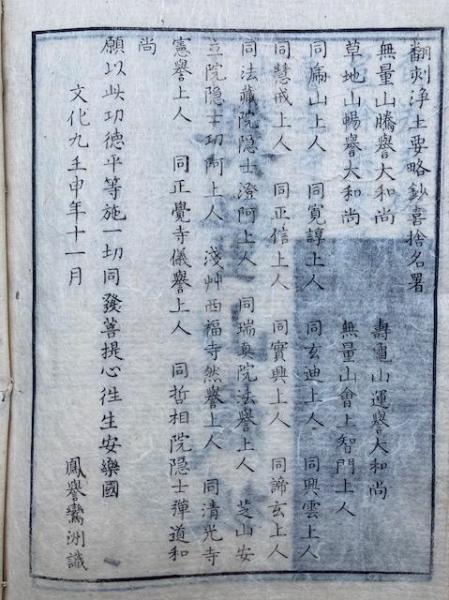 翻刻淨土要略鈔喜捨名署
無量山騰譽大和尚　壽龜山運譽大和尚
草地山暢譽大和尚　無量山會上智門上人
同扁山上人　同寬諄上人　同玄迪上人　同興雲上人
同慧戒上人　同正信上人　同實興上人　同諦玄上人
同法藏院隱士澄阿上人　同瑞真院法譽上人　芝山安
立院隱士功阿上人　淺艸西福寺然譽上人　同清光寺
憲譽上人　同正覺寺儀譽上人　同哲相院隱士禪道和
尚
願以此功德平等施一切同發菩提心徃生安樂國
文化九壬申年十一月
鳳譽鸞洲識